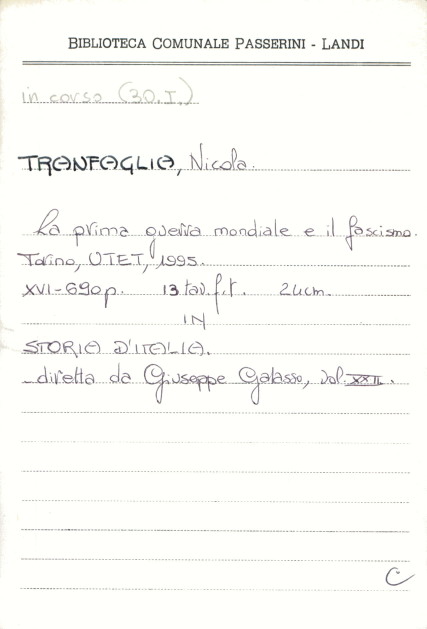 BIBLIOTECA COMUNALE PASSERINI - LANDI
in corso (30.I.)
TRANFAGLIA, Nicola.
La prima guerra mondiale e il fascismo.
Torino, UTET, 1995.
XVI-690p. 13 tav.f.t. 24cm.
IN
STORIA D'ITALIA.
diretta da Giuseppe Galasso, Vol. XXII.
C